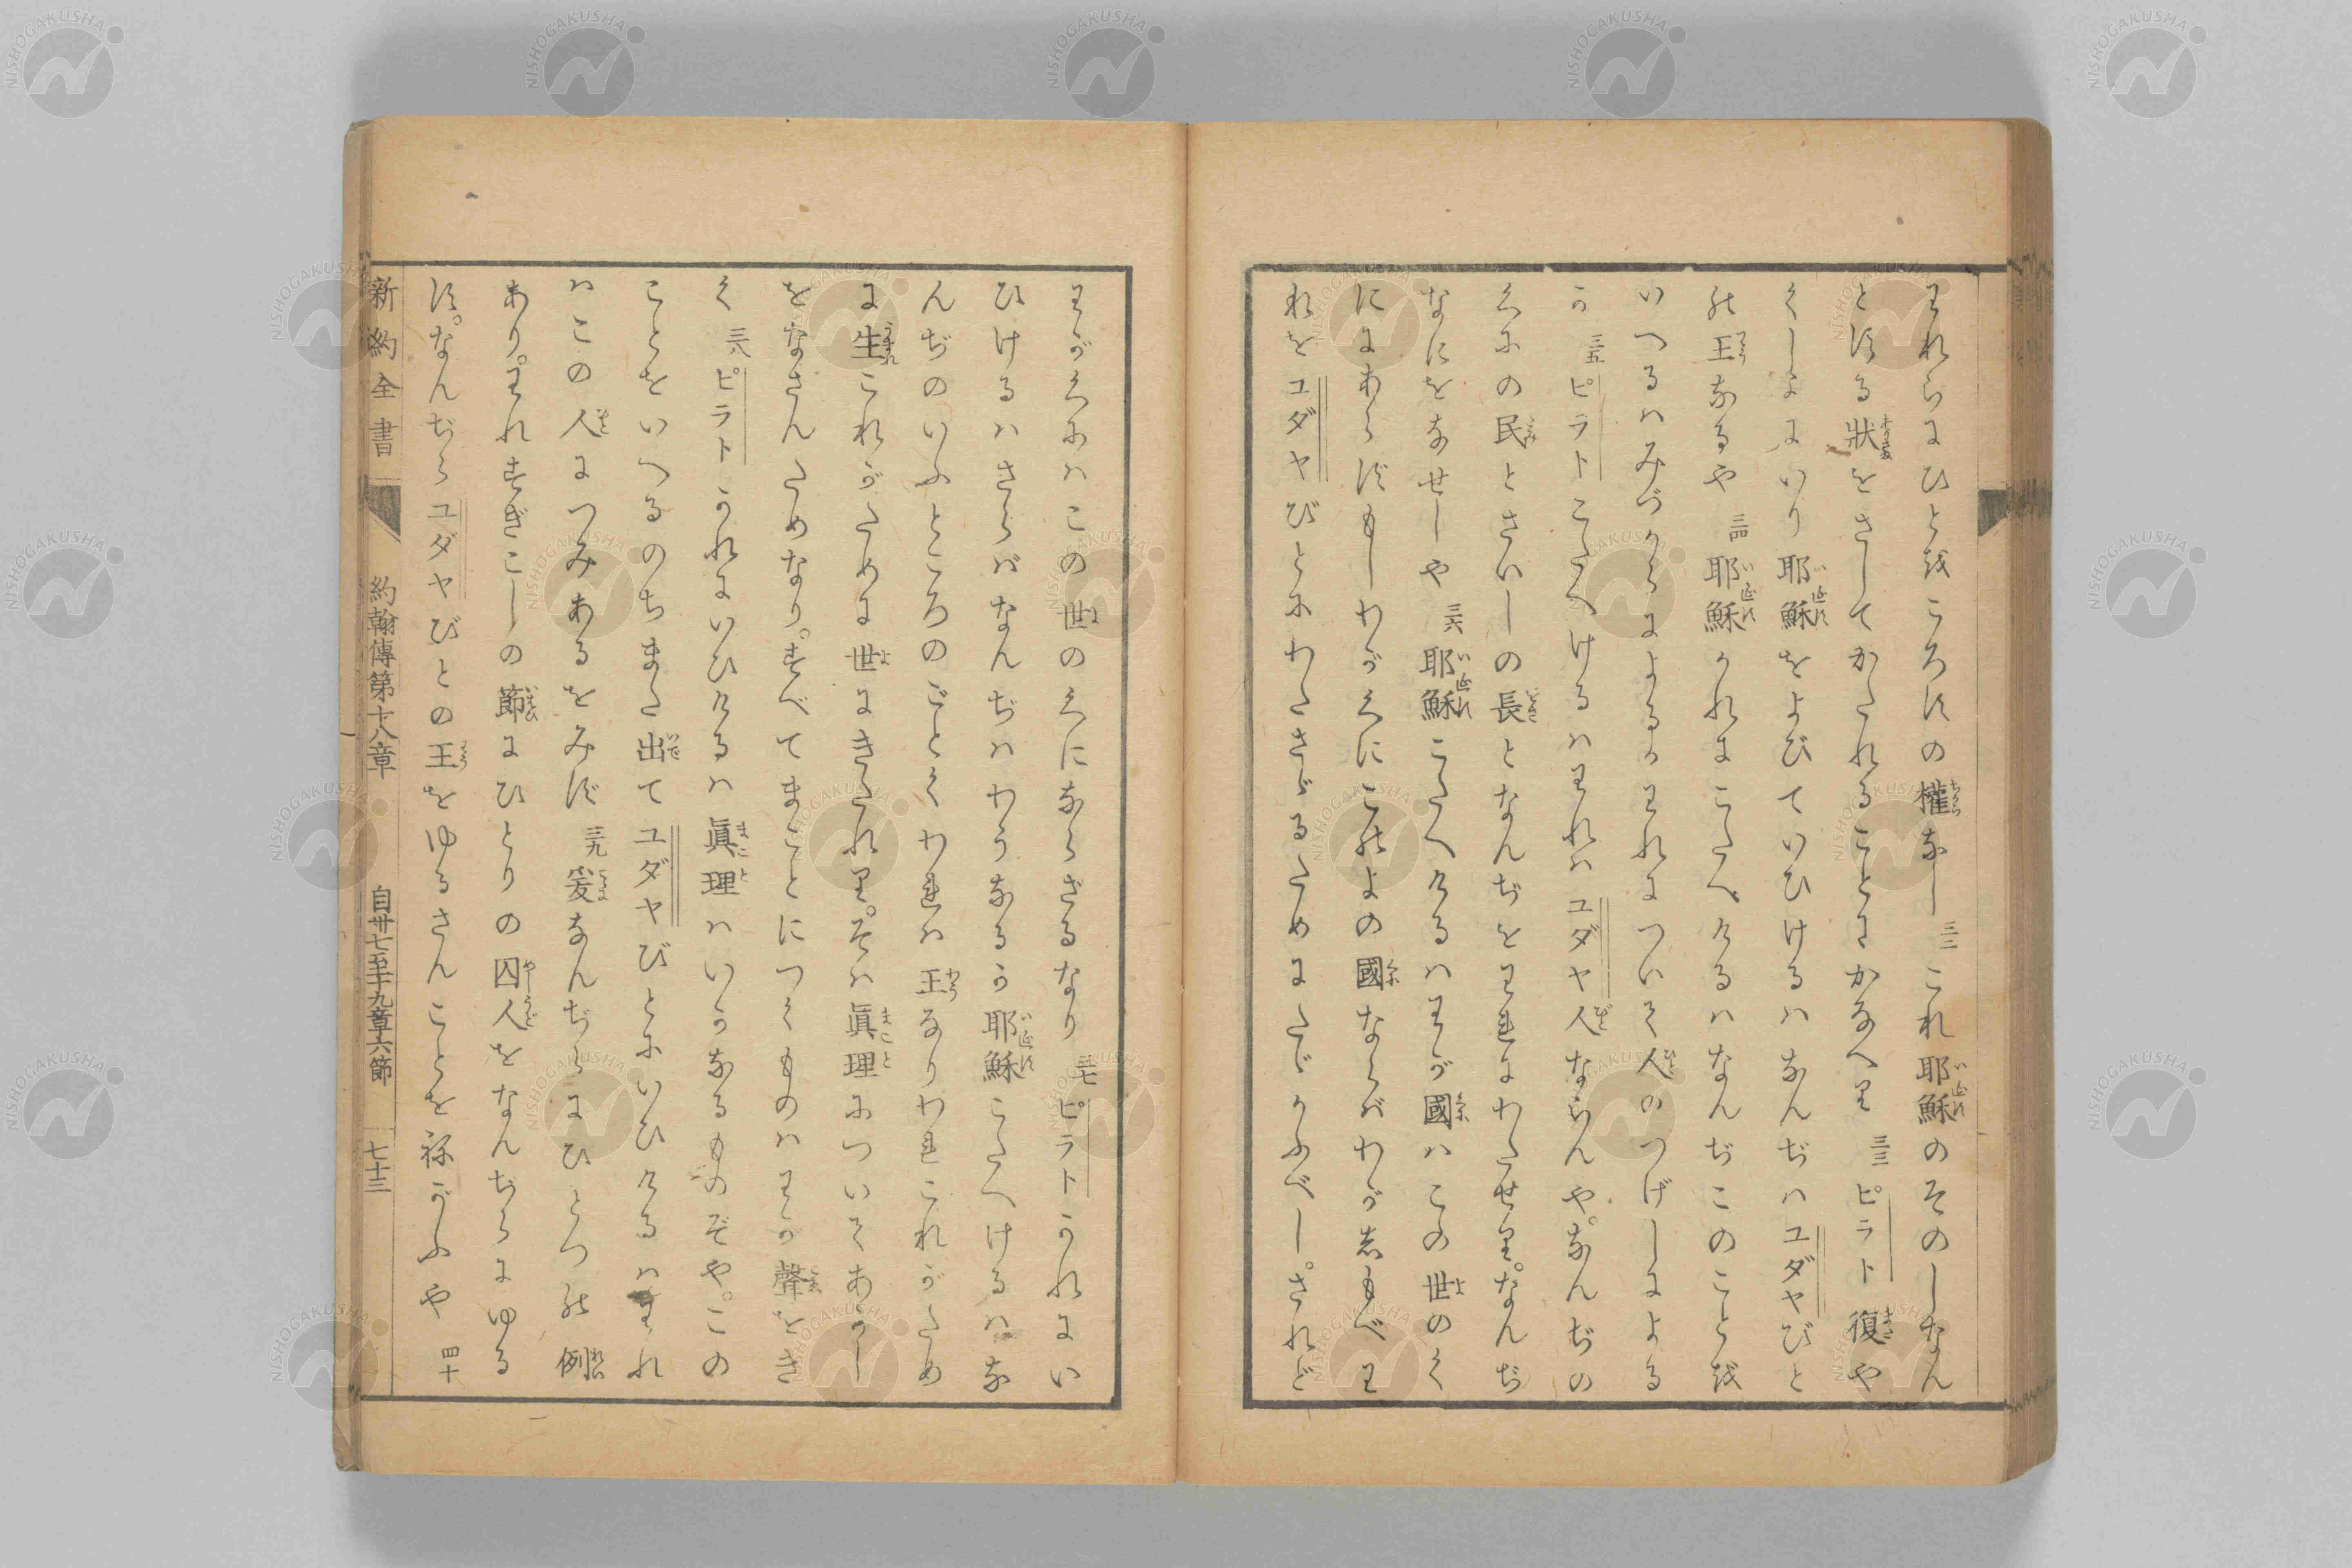 われらにひとをころすの權なし 三二 これ耶穌のそのしなん
とする狀をさしてかたれることにかなへり 三三 ピラト復や
くしよにいり耶穌をよびていひけるハなんぢハユダヤびと
の王なるや 三四 耶穌かれにこたへけるハなんぢこのことを
いへるハみづからによるかわれについて人のつげしによる
か 三五 ピラトこたへけるハわれハユダヤ人ならんや。なんぢの
くにの民とさいしの長となんぢをわれにわたせり。なんぢ
なにをなせしや 三六 耶穌こたへけるハわが國ハこの世のく
ににあらずもしわがくにこのよの國ならバわが志もべわ
れをユダヤびとにわたさざるためにたゝかふべし。されど
わがくにハこの世のくにならざるなり 三七 ピラトかれにい
ひけるハさらバなんぢハわうなるか耶穌こたへけるハな
んぢのいふところのごとくわれハ王なりわれこれがため
に生これがために世にきたれり。そハ眞理についてあかし
をなさんためなり。すべてまことにつくものハわが聲をき
く 三八 ピラトかれにいひけるハ眞理ハいかなるものぞや。この
ことをいへるのちまた出てユダヤびとにいひけるハわれ
ハこの人につみあるをみず 三九 爰なんぢらにひとつの例
あり。われすぎこしの節にひとりの囚人をなんぢらにゆる
す。なんぢらユダヤびとの王をゆるさんことをねがふや 四十
新約全書 約翰傳第十八章 自卅七至十九章六節 七十三